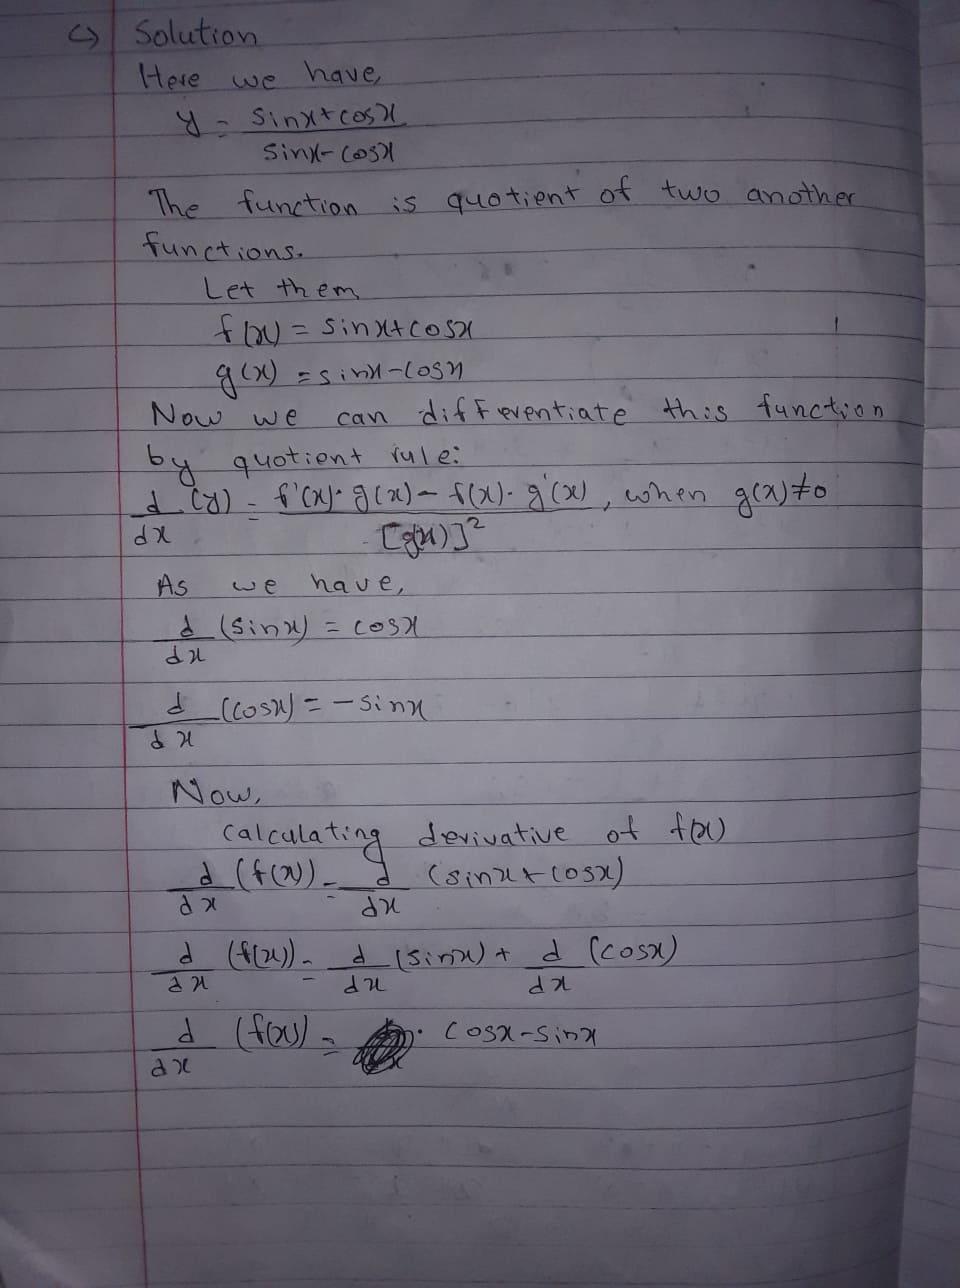 c) Solution
Here we have,
y = sinx+cosx
sinx-cosx
The function is quotient of two another
functions.
Let them
f(x) = sinx+cosx
g(x) = sinx-cosx
Now we can differentiate this function
by quotient rule:
d (y) = f'(x)·g(x)-f(x)·g'(x), when g(x)≠0
dx [g(x)]²
As we have,
d (sinx) = cosx
dx
d (cosx) = -sinx
dx
Now,
calculating derivative of f(x)
d (f(x)) = d (sinx+cosx)
dx dx
d (f(x)) = d (sinx) + d (cosx)
dx dx dx
d (f(x)) = cosx-sinx
dx